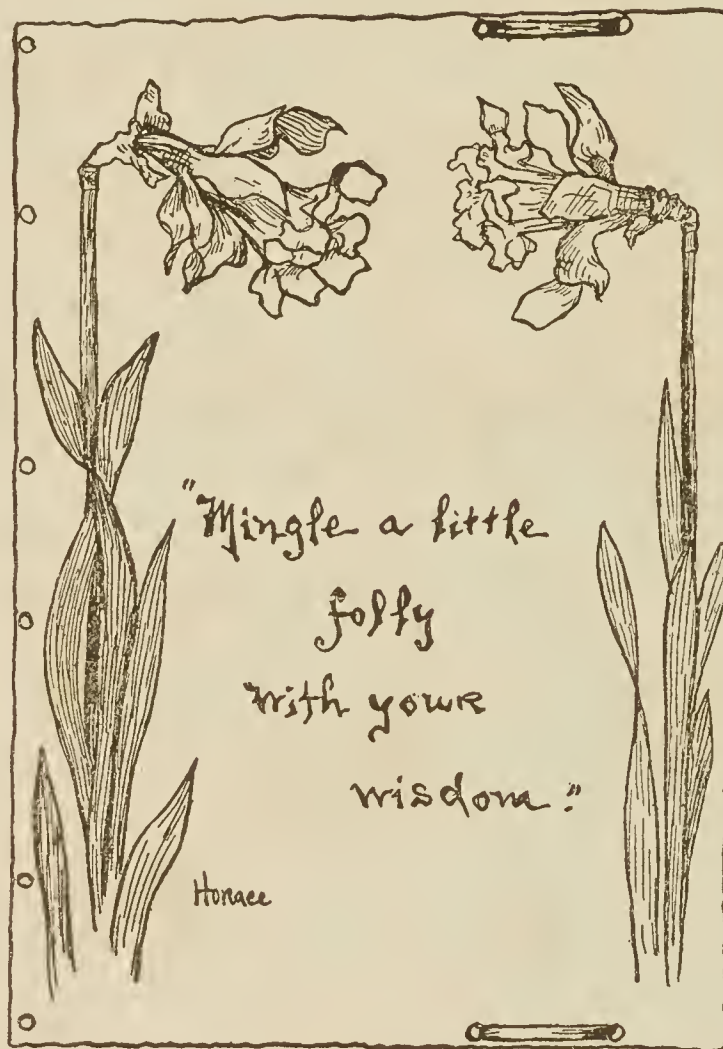 "Mingle a little
folly
with your
wisdom."
Horace